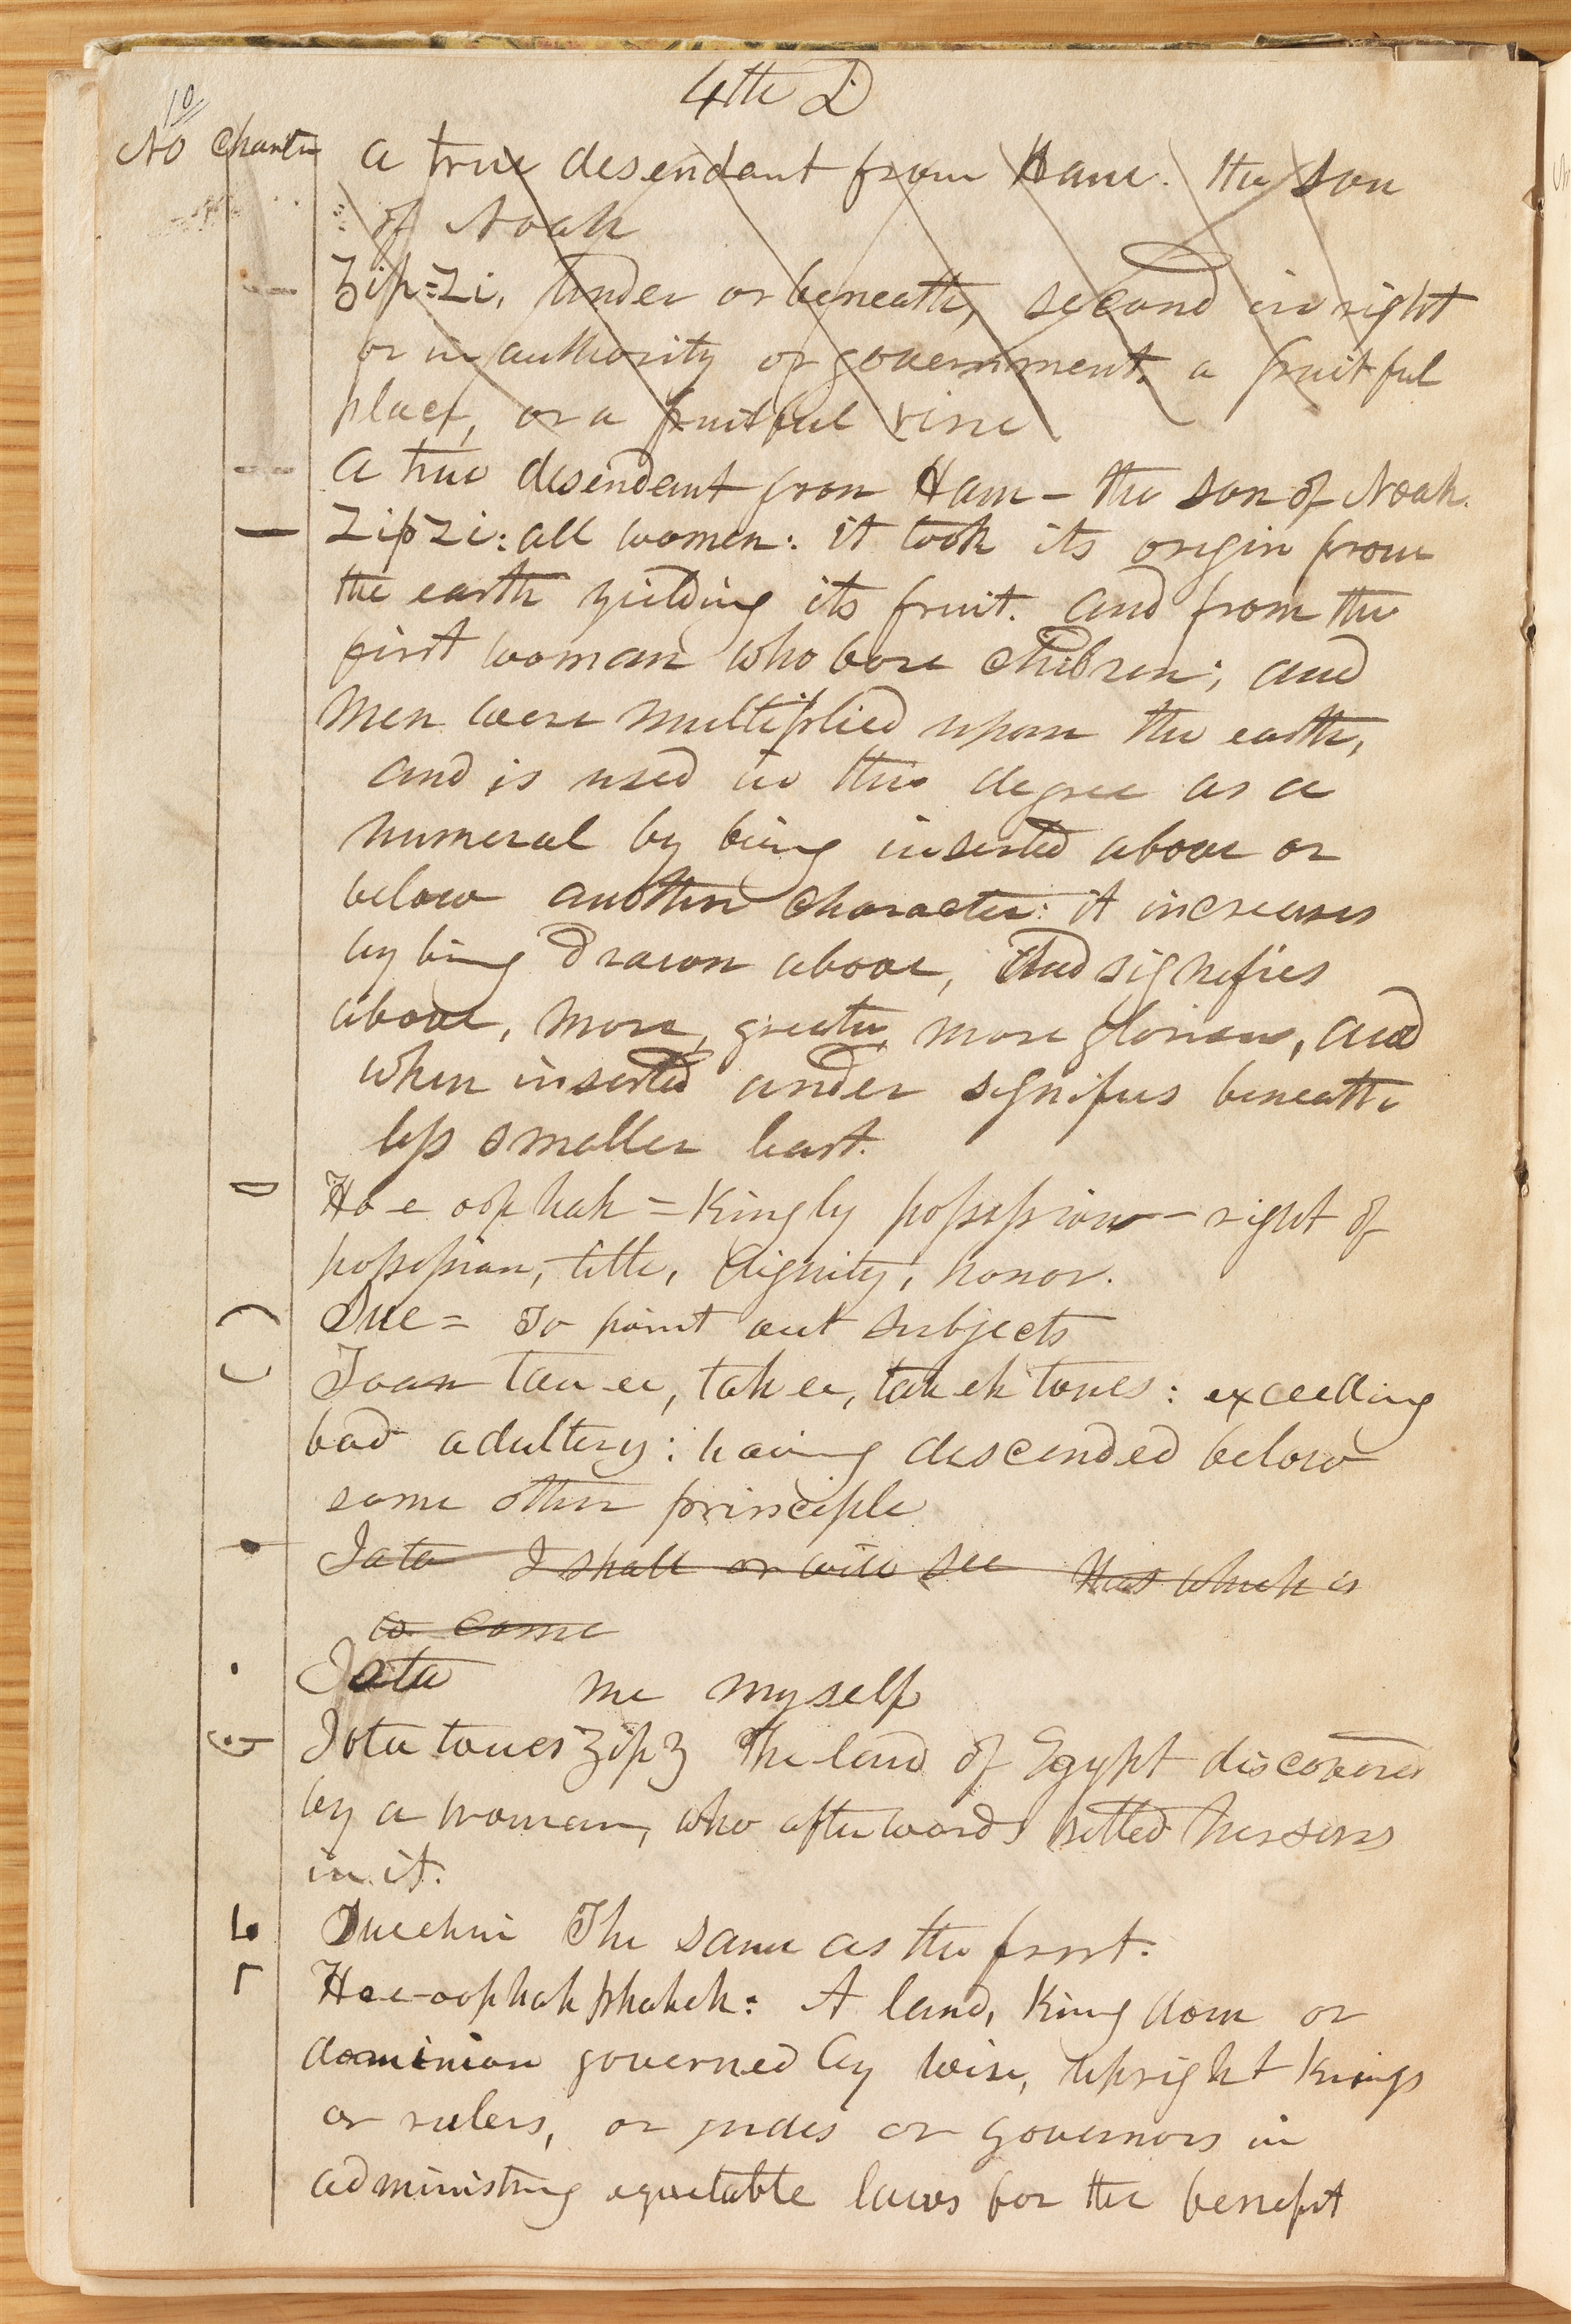 4th D
10
No charter a true desendant from Ham. the son
of Noah
Zip=Zi, Under or beneath, second in right
or in authority or government, a fruitful
place, or a fruitful vine
a true desendant from Ham – the son of Noah.
Zip Zi: all women: it took its origin from
the earth yielding its fruit. and from the
first woman who bore children; and
men were multiplied upon the earth,
and is used in this degree as a
numeral by being inserted above or
below another character: it increases
by being drawn above, and signifies
above, more, greater, more glorious, and
when inserted under signifies beneath
less smaller least.
Ho-e oop hah = Kingly possession – right of
possession, title, dignity, honor.
Sue = To point out subjects
Toan tau ee, tah ee, tah eh toues: exceeding
bad adultery: having descended below
some other principle
Iata I shall or will see that which is
to come
Iota me myself
Iota toues Zip Z The land of Egypt discovered
by a woman, who afterwards settled her sons
in it.
Sue ehni The same as the first.
Ho-e-oophah phaheh: A land, Kingdom or
dominion governed by wise, upright kings
or rulers, or judes or governors in
administring equetable laws for the benefit